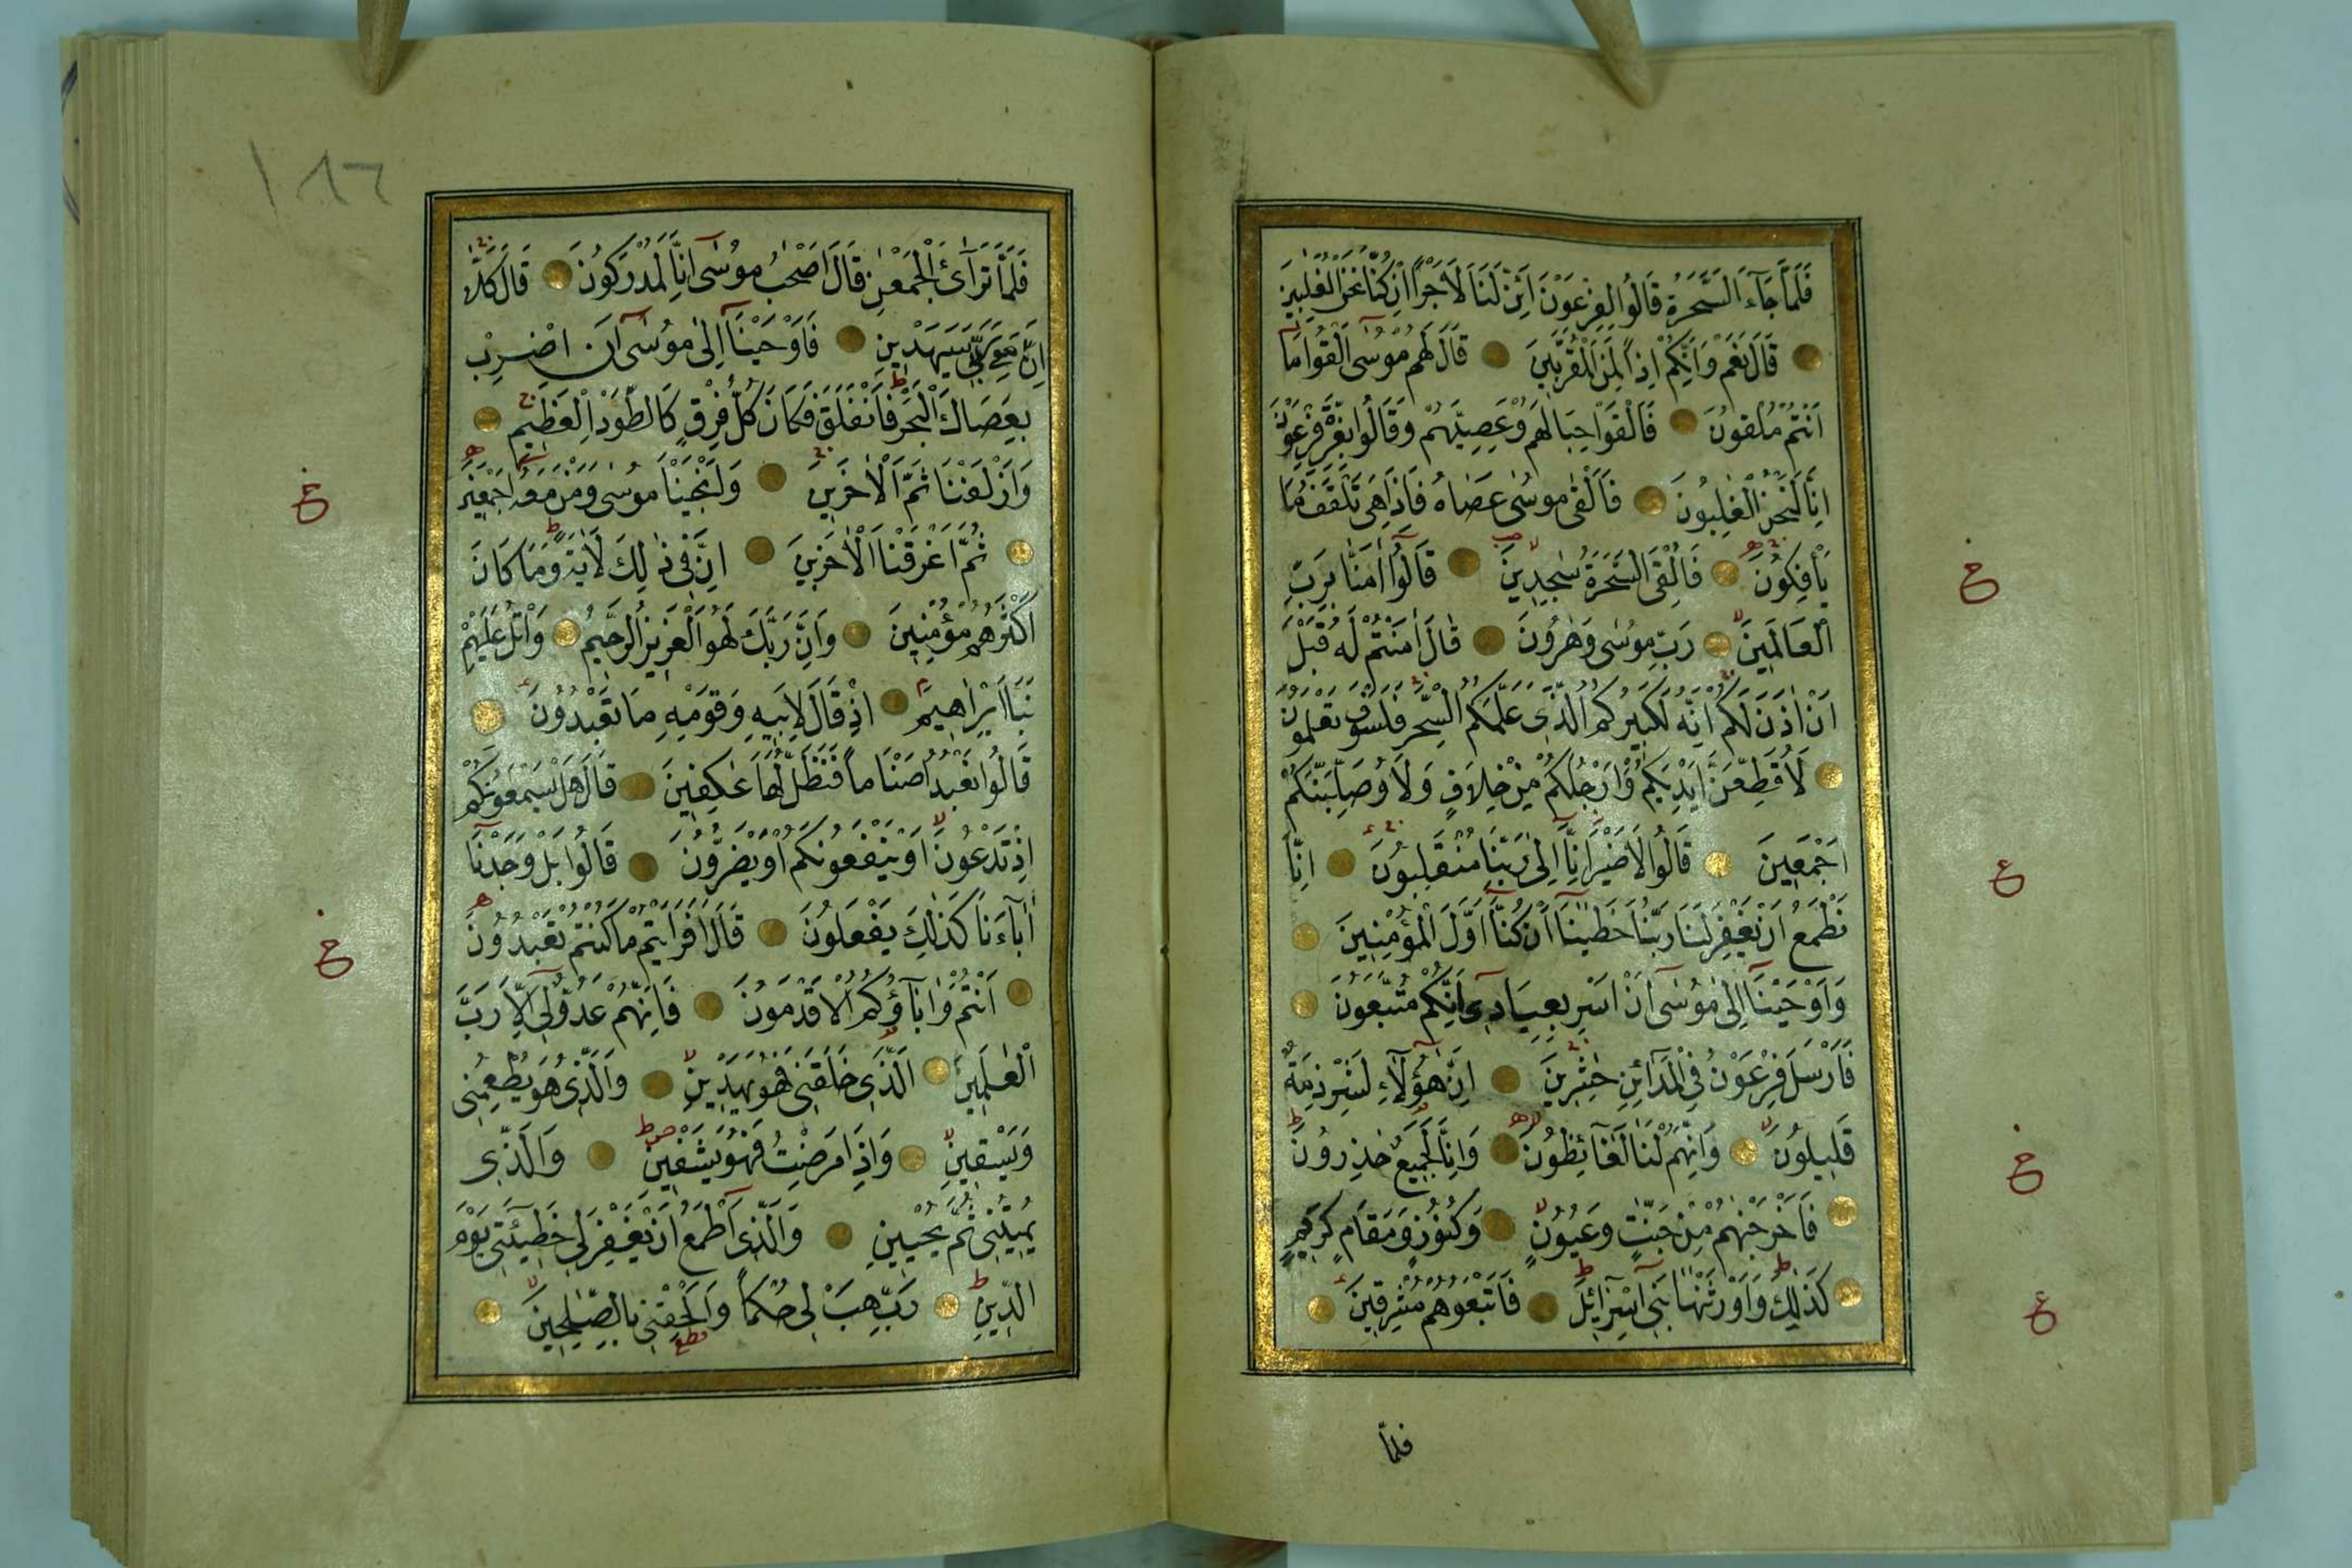 فَلَمَّا جَآءَ السَّحَرَةُ قَالُوا لِفِرْعَوْنَ اَئِنَّ لَنَا لَاَجْرًا اِنْ كُنَّا نَحْنُ الْغٰلِبِينَ
قَالَ نَعَمْ وَاِنَّكُمْ اِذًا لَمِنَ الْمُقَرَّبِينَ قَالَ لَهُمْ مُوسٰى اَلْقُوا مَا
اَنْتُمْ مُلْقُونَ فَاَلْقَوْا حِبَالَهُمْ وَعِصِيَّهُمْ وَقَالُوا بِعِزَّةِ فِرْعَوْنَ
اِنَّا لَنَحْنُ الْغٰلِبُونَ فَاَلْقٰى مُوسٰى عَصَاهُ فَاِذَا هِيَ تَلْقَفُ مَا
يَأْفِكُونَ فَاُلْقِيَ السَّحَرَةُ سٰجِدِينَ قَالُوا اٰمَنَّا بِرَبِّ
الْعَالَمِينَ رَبِّ مُوسٰى وَهٰرُونَ قَالَ اٰمَنْتُمْ لَهُ قَبْلَ
اَنْ اٰذَنَ لَكُمْ اِنَّهُ لَكَبِيرُكُمُ الَّذِى عَلَّمَكُمُ السِّحْرَ فَلَسَوْفَ تَعْلَمُونَ
لَاُقَطِّعَنَّ اَيْدِيَكُمْ وَاَرْجُلَكُمْ مِنْ خِلَافٍ وَلَاُوصَلِّبَنَّكُمْ
اَجْمَعِينَ قَالُوا لَا ضَيْرَ اِنَّا اِلٰى رَبِّنَا مُنْقَلِبُونَ اِنَّا
نَطْمَعُ اَنْ يَغْفِرَ لَنَا رَبُّنَا خَطٰيٰنَا اَنْ كُنَّا اَوَّلَ الْمُؤْمِنِينَ
وَاَوْحَيْنَا اِلٰى مُوسٰى اَنْ اَسْرِ بِعِبَادِى اِنَّكُمْ مُتَّبَعُونَ
فَاَرْسَلَ فِرْعَوْنُ فِى الْمَدَآئِنِ حٰشِرِينَ اِنَّ هٰؤُلَآءِ لَشِرْذِمَةٌ
قَلِيلُونَ وَاِنَّهُمْ لَنَا لَغَآئِظُونَ وَاِنَّا لَجَمِيعٌ حٰذِرُونَ
فَاَخْرَجْنٰهُمْ مِنْ جَنّٰتٍ وَعُيُونٍ وَكُنُوزٍ وَمَقَامٍ كَرِيمٍ
كَذٰلِكَ وَاَوْرَثْنٰهَا بَنِى اِسْرَآئِلَ فَاَتْبَعُوهُمْ مُشْرِقِينَ
فلمّا
١٨٦
فَلَمَّا تَرَآئَ الْجَمْعٰنِ قَالَ اَصْحٰبُ مُوسٰى اِنَّا لَمُدْرَكُونَ قَالَ كَلَّا
اِنَّ مَعِىَ رَبِّى سَيَهْدِينِ فَاَوْحَيْنَا اِلٰى مُوسٰى اَنِ اضْرِبْ
بِعَصَاكَ الْبَحْرَ فَانْفَلَقَ فَكَانَ كُلُّ فِرْقٍ كَالطَّوْدِ الْعَظِيمِ
وَاَزْلَفْنَا ثَمَّ الْاٰخَرِينَ وَاَنْجَيْنَا مُوسٰى وَمَنْ مَعَهُ اَجْمَعِينَ
ثُمَّ اَغْرَقْنَا الْاٰخَرِينَ اِنَّ فِى ذٰلِكَ لَاٰيَةً وَمَا كَانَ
اَكْثَرُهُمْ مُؤْمِنِينَ وَاِنَّ رَبَّكَ لَهُوَ الْعَزِيزُ الرَّحِيمُ وَاتْلُ عَلَيْهِمْ
نَبَاَ اِبْرٰاهِيمَ اِذْ قَالَ لِاَبِيهِ وَقَوْمِهِ مَا تَعْبُدُونَ
قَالُوا نَعْبُدُ اَصْنَامًا فَنَظَلُّ لَهَا عٰكِفِينَ قَالَ هَلْ يَسْمَعُونَكُمْ
اِذْ تَدْعُونَ اَوْ يَنْفَعُونَكُمْ اَوْ يَضُرُّونَ قَالُوا بَلْ وَجَدْنَا
اٰبَآءَنَا كَذٰلِكَ يَفْعَلُونَ قَالَ اَفَرَاَيْتُمْ مَا كُنْتُمْ تَعْبُدُونَ
اَنْتُمْ وَاٰبَآؤُكُمُ الْاَقْدَمُونَ فَاِنَّهُمْ عَدُوٌّ لِى اِلَّا رَبَّ
الْعٰلَمِينَ الَّذِى خَلَقَنِى فَهُوَ يَهْدِينِ وَالَّذِى هُوَ يُطْعِمُنِى
وَيَسْقِينِ وَاِذَا مَرِضْتُ فَهُوَ يَشْفِينِ وَالَّذِى
يُمِيتُنِى ثُمَّ يُحْيِينِ وَالَّذِى اَطْمَعُ اَنْ يَغْفِرَ لِى خَطِيئَتِى يَوْمَ
الدِّينِ رَبِّ هَبْ لِى حُكْمًا وَاَلْحِقْنِى بِالصّٰلِحِينَ